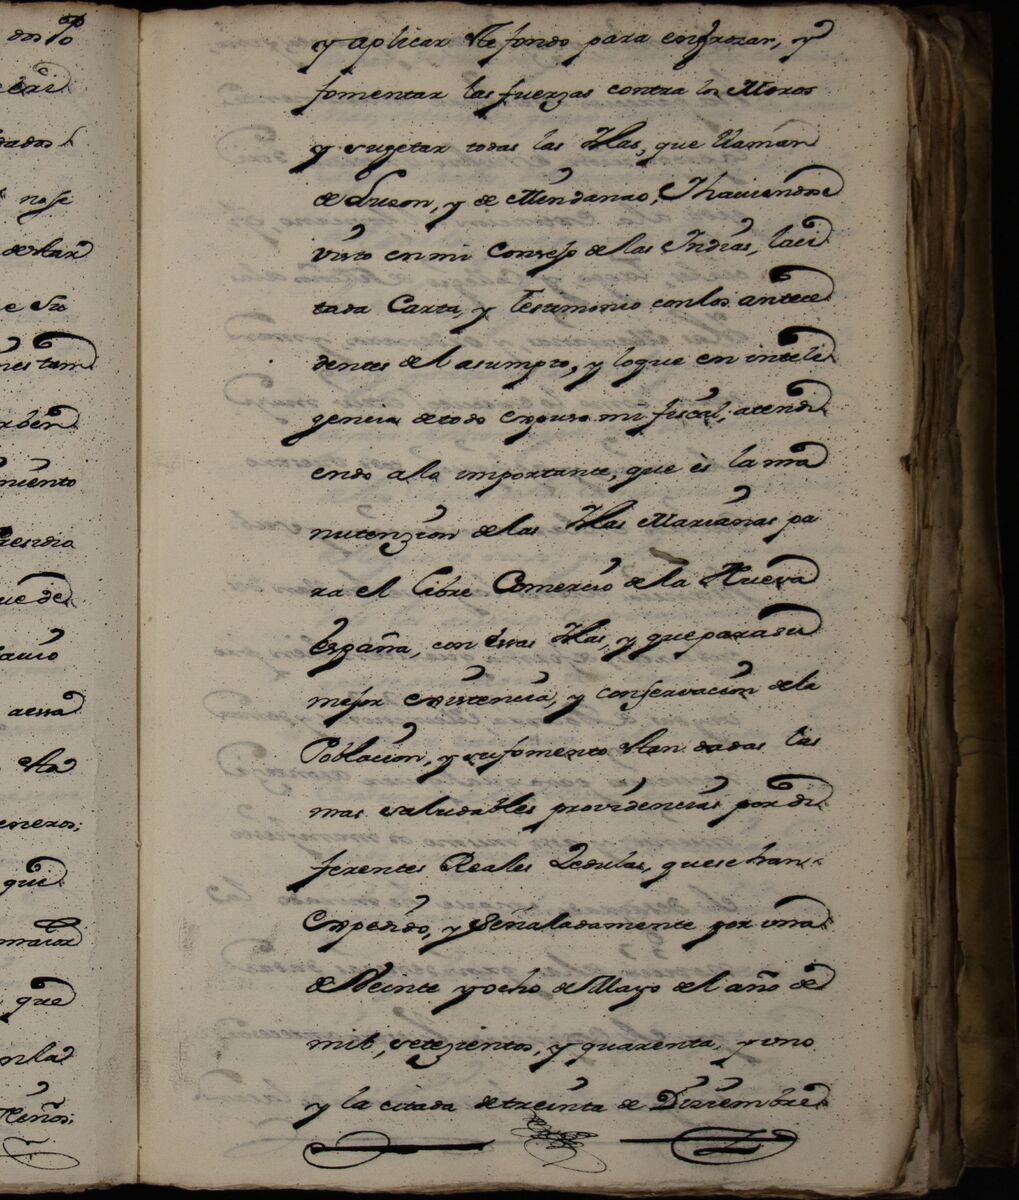 y aplicar este fondo para engrozar, y
fomentar las fuerzas contra los Moros
y sugetar todas las Islas, que llaman
de Luzon, y de Mindanao, Y haviendose
visto en mi Consejo de las Indias, la ci
tada Carta, y Testimonio con los antece
dentes del asumpto, y lo que en inteli
gencia de todo expuso mi fiscal, atendi
endo a lo importante, que ès la ma
nutenzion de las Islas Marianas pa
ra el libre Comercio de la Nueva
España, con èssas Islas, y que para su
mejor existencia, y conservacion de la
Poblacion, y su fomento stan dadas las
mas saludables providencias por di
ferentes Reales Zedulas, que se han
Expedido, y señaladamente por una
de Veinte y ocho de Mayo del año de
mil, setezientos, y quarenta, y uno
y la citada de treinta de Diziembre